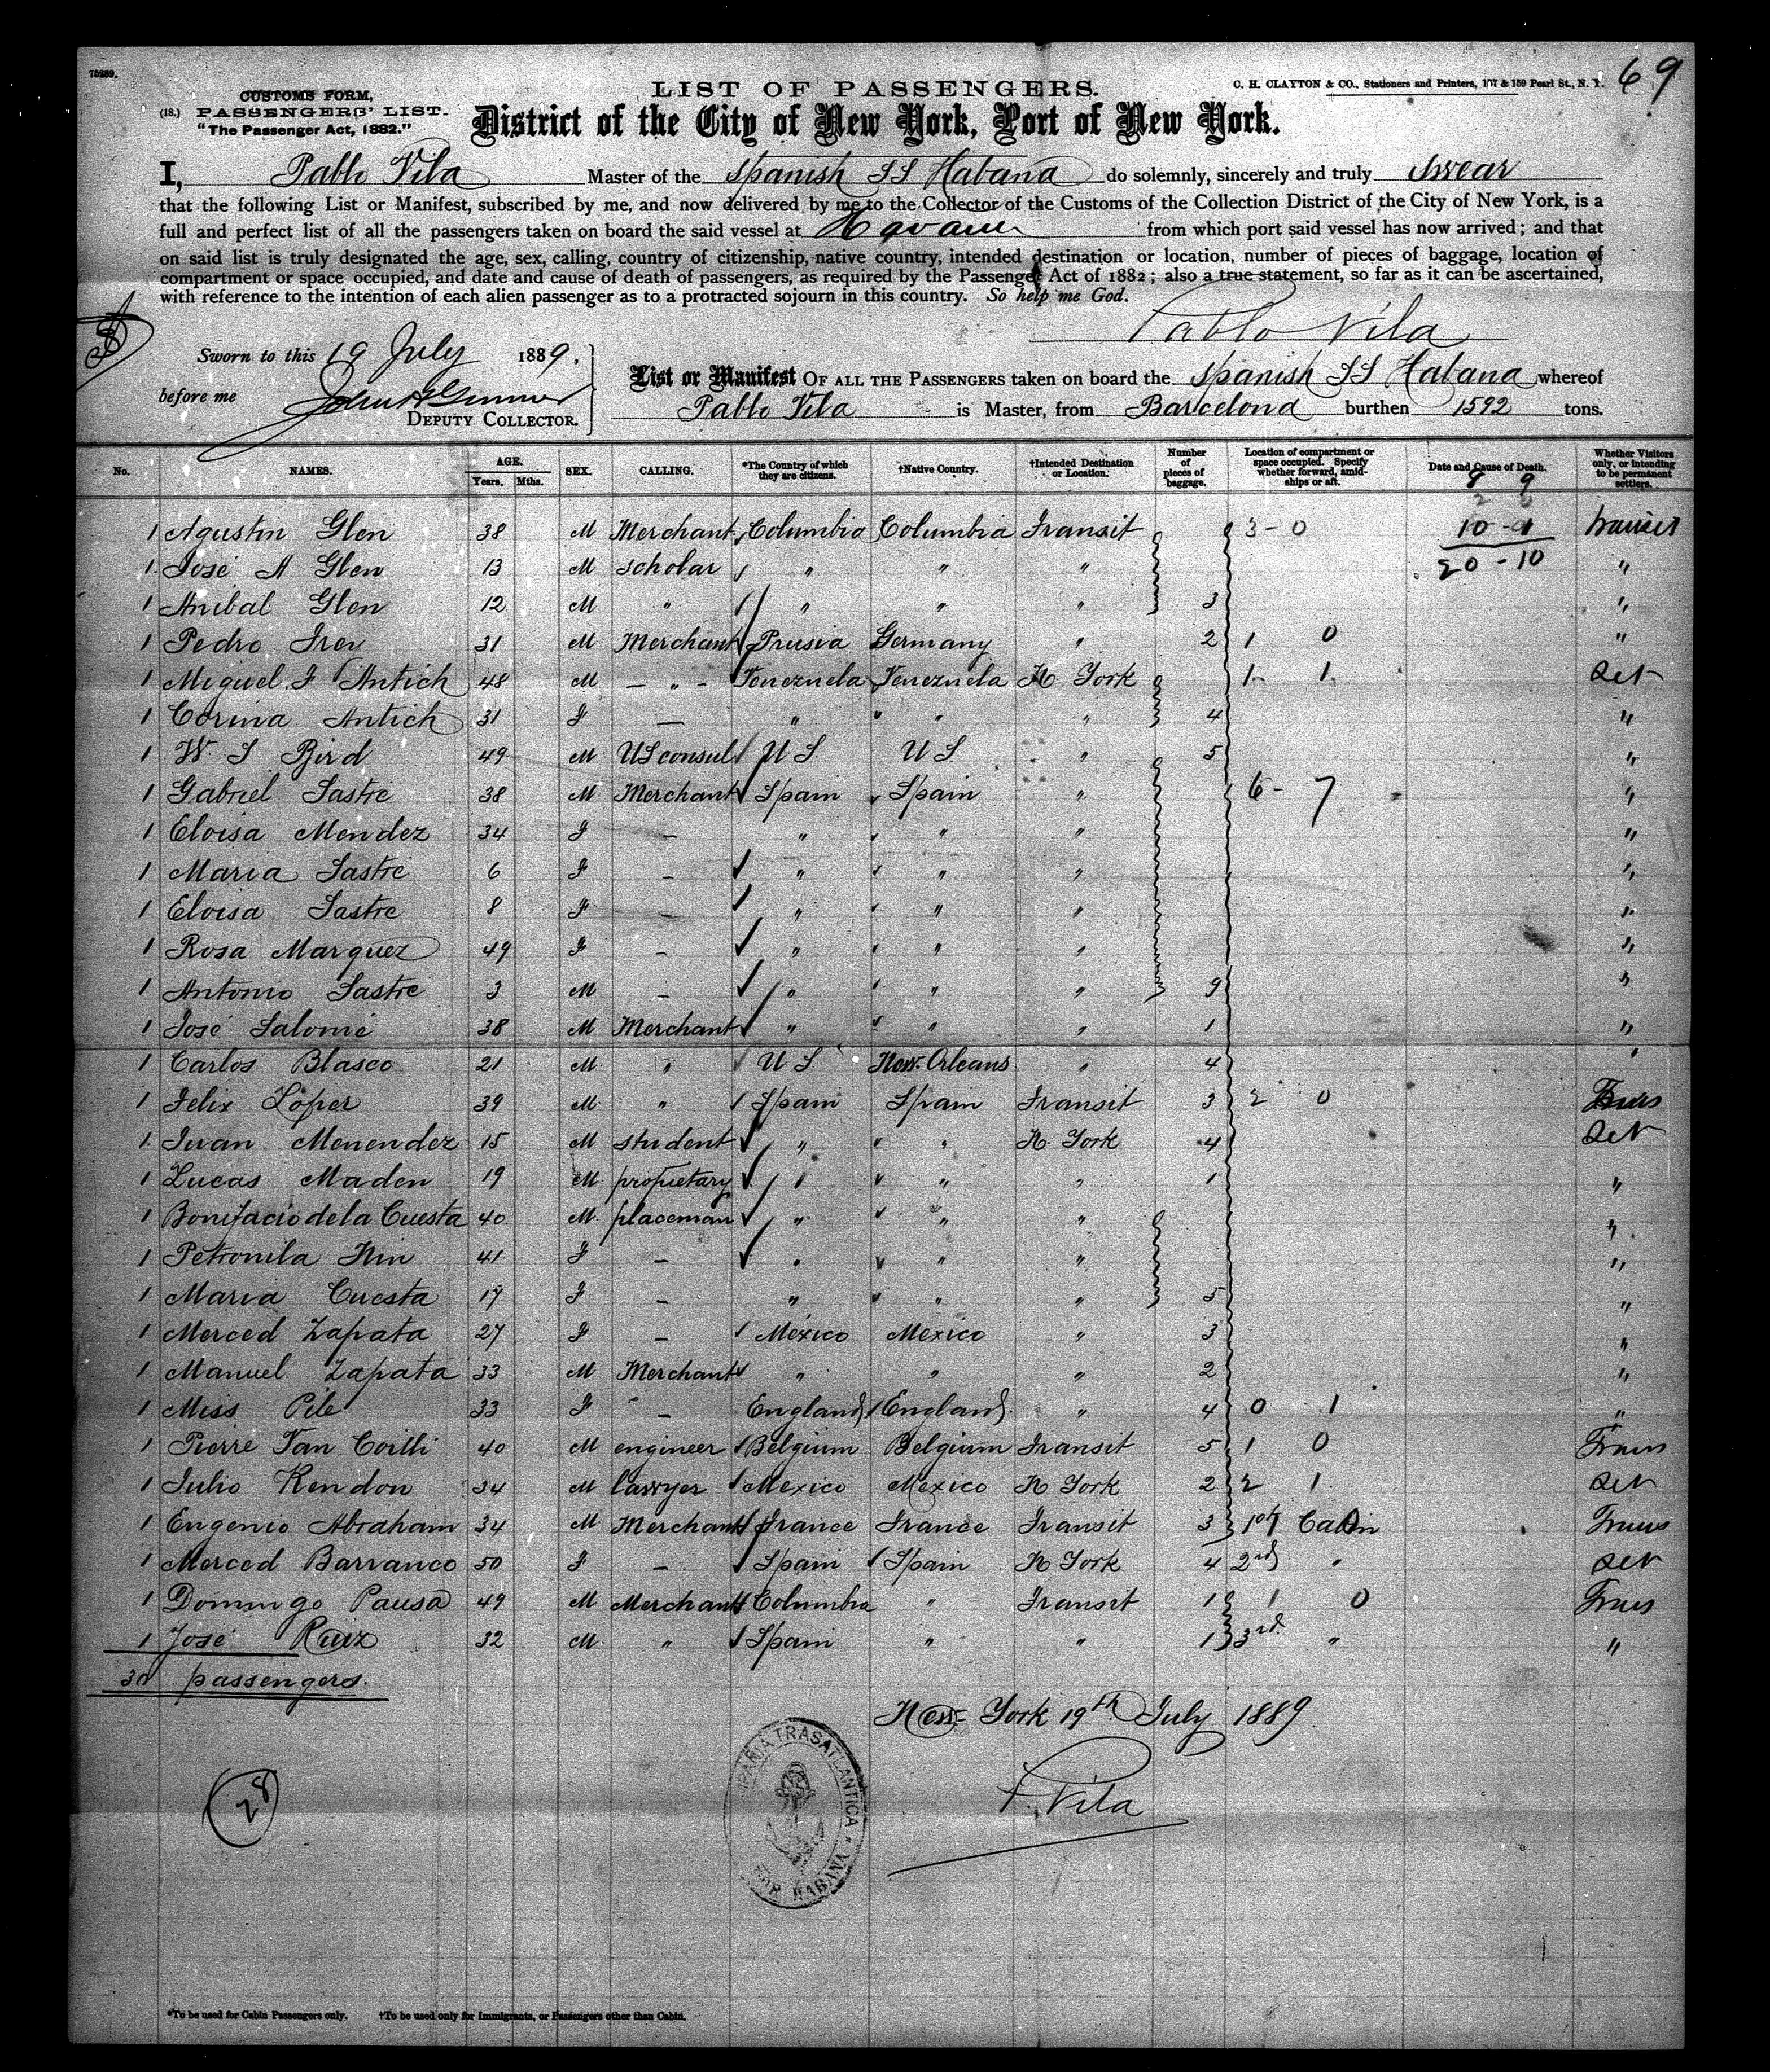 69
75289.
LIST OF PASSENGERS.
C. H. CLAYTON & CO., Stationers and Printers, 157 & 159 Pearl St., N. Y.
CUSTOMS FORM,
(18.) PASSENGERS' LIST.
"The Passenger Act, 1882."
District of the City of New York, Port of New York.
I, Pablo Vila Master of the Spanish SS Habana do solemnly, sincerely and truly swear
that the following List or Manifest, subscribed by me, and now delivered by me to the Collector of the Customs of the Collection District of the City of New York, is a
full and perfect list of all the passengers taken on board the said vessel at Havana from which port said vessel has now arrived; and that
on said list is truly designated the age, sex, calling, country of citizenship, native country, intended destination or location, number of pieces of baggage, location of
compartment or space occupied, and date and cause of death of passengers, as required by the Passenger Act of 1882; also a true statement, so far as it can be ascertained,
with reference to the intention of each alien passenger as to a protracted sojourn in this country. So help me God.
Pablo Vila
Sworn to this 19 July 1889.
before me
DEPUTY COLLECTOR.
List or Manifest OF ALL THE PASSENGERS taken on board the Spanish SS Habana whereof
Pablo Vila is Master, from Barcelona burthen 1592 tons.
No. NAMES. AGE. Years. Mths. SEX. CALLING. *The Country of which they are citizens. †Native Country. †Intended Destination or Location. Number of pieces of baggage. Location of compartment or space occupied. Specify whether forward, amidships or aft. Date and Cause of Death. Whether Visitors only, or intending to be permanent settlers.
1 Agustin Glen 38 M Merchant Columbia Columbia Transit 3 - 0 10 - 9 transit
1 José A Glen 13 M scholar " " " 20 - 10 "
1 Anibal Glen 12 M " " " " 3 "
1 Pedro 31 M Merchant Prusia Germany " 2 1 0 "
1 Miguel F Antich 48 M - " - Venezuela Venezuela N York 1 - 1 Set
1 Corina Antich 31 F — " " " 4 "
1 W. S Bird 49 M US consul U S U S " 5 "
1 Gabriel Sastre 38 M Merchant Spain Spain " 6 - 7 "
1 Eloisa Mendez 34 F - " " " "
1 Maria Sastre 6 F - " " " "
1 Eloisa Sastre 8 F - " " " "
1 Rosa Marquez 49 F - " " " "
1 Antonio Sastre 3 M - " " " 9 "
1 José Salomé 38 M Merchant " " " 1 "
1 Carlos Blasco 21 M " U S New Orleans " 4 "
1 Felix Lopez 39 M " Spain Spain Transit 3 2 0 Trans
1 Juan Menendez 15 M student " " N. York 4 Set
1 Lucas Maden 19 M propietary " " " 1 "
1 Bonifacio de la Cuesta 40 M placeman " " " "
1 Petronila Nin 41 F - " " " "
1 Maria Cuesta 17 F - " " " 5 "
1 Merced Zapata 27 F - México Mexico " 3 "
1 Manuel Zapata 33 M Merchant " " " 2 "
1 Miss Pile 33 F - England England " 4 0 1 "
1 Pierre Van 40 M engineer Belgium Belgium Transit 5 1 0 Trans
1 Julio Rendon 34 M lawyer Mexico Mexico N York 2 2 1 Set
1 Eugenio Abraham 34 M Merchant France France Transit 3 1st Cabin Trans
1 Merced Barranco 50 F - Spain Spain N York 4 2nd " Set
1 Domingo Pausa 49 M Merchant Columbia " Transit 1 1 0 Trans
1 José Ruiz 32 M " Spain " " 1 3rd " "
30 passengers.
New York 19th July 1889
P. Vila
28
COMPAÑIA TRASATLANTICA
VAPOR HABANA
*To be used for Cabin Passengers only. †To be used only for Immigrants, or Passengers other than Cabin.